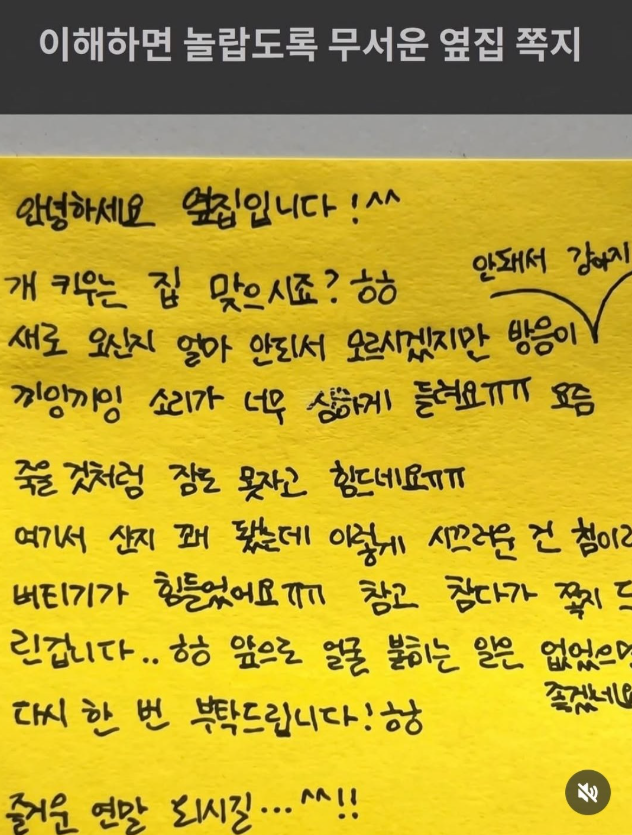 이해하면 놀랍도록 무서운 옆집 쪽지
안녕하세요 옆집입니다!^^
개 키우는 집 맞으시죠? ㅎㅎ
안돼서 강아지
새로 오신지 얼마 안되서 모르시겠지만 방음이
끼잉끼잉 소리가 너무 심하게 들려요ㅠㅠ 요즘
죽을것처럼 잠도 못자고 힘드네요ㅠㅠ
여기서 산지 꽤 됐는데 이렇게 시끄러운 건 첨이라
버티기가 힘들었어요ㅠㅠ 참고 참다가 쪽지 드
린겁니다.. ㅎㅎ 앞으로 얼굴 붉히는 일은 없었으면
좋겠네요
다시 한 번 부탁드립니다! ㅎㅎ
즐거운 연말 되시길...^^!!